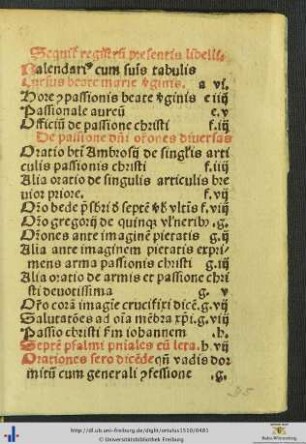 Sequit̃ registrũ presentis libelli.
Kalendariꝰ cum suis tabulis
Cursus beate marie v̾ginis. a vi.
Hore ⁊ passionis beate v̾ginis e iiij
Passionale aureũ e. v
Officiũ de passione christi f. iij
De passione dñi or̃ones diuersas
Oratio bt̃i Ambrosij de sing̃lis arti
culis passionis christi f. iiij
Alia oratio de singulis articulis bre
uior priore. f. vij
Or̃o bede p̃sbri de septẽ vltĩs f. viij
Or̃o gregorij de quinq̃ vl̃neribꝰ. g.
Or̃ones ante imaginẽ pietatis g. ij
Alia ante imaginem pietatis expri
mens arma passionis christi g. iij
Alia oratio de armis et passione chri
sti deuotissima g. v
Or̃o corã imagĩe crucifixi dicẽ. g. vij
Salutatões ad oĩa mẽbra xp̃i. g. viij
Passio christi f̃m iohannem .h.
Septẽ psalmi pñiales cũ leta. h. vij
Orationes sero dicẽde qñ vadis dor
mitũ cum generali ↄfessione .g.
http://dl.ub.uni-freiburg.de/diglit/ortulus1510/0481
© Universitätsbibliothek Freiburg
Baden-Württemberg